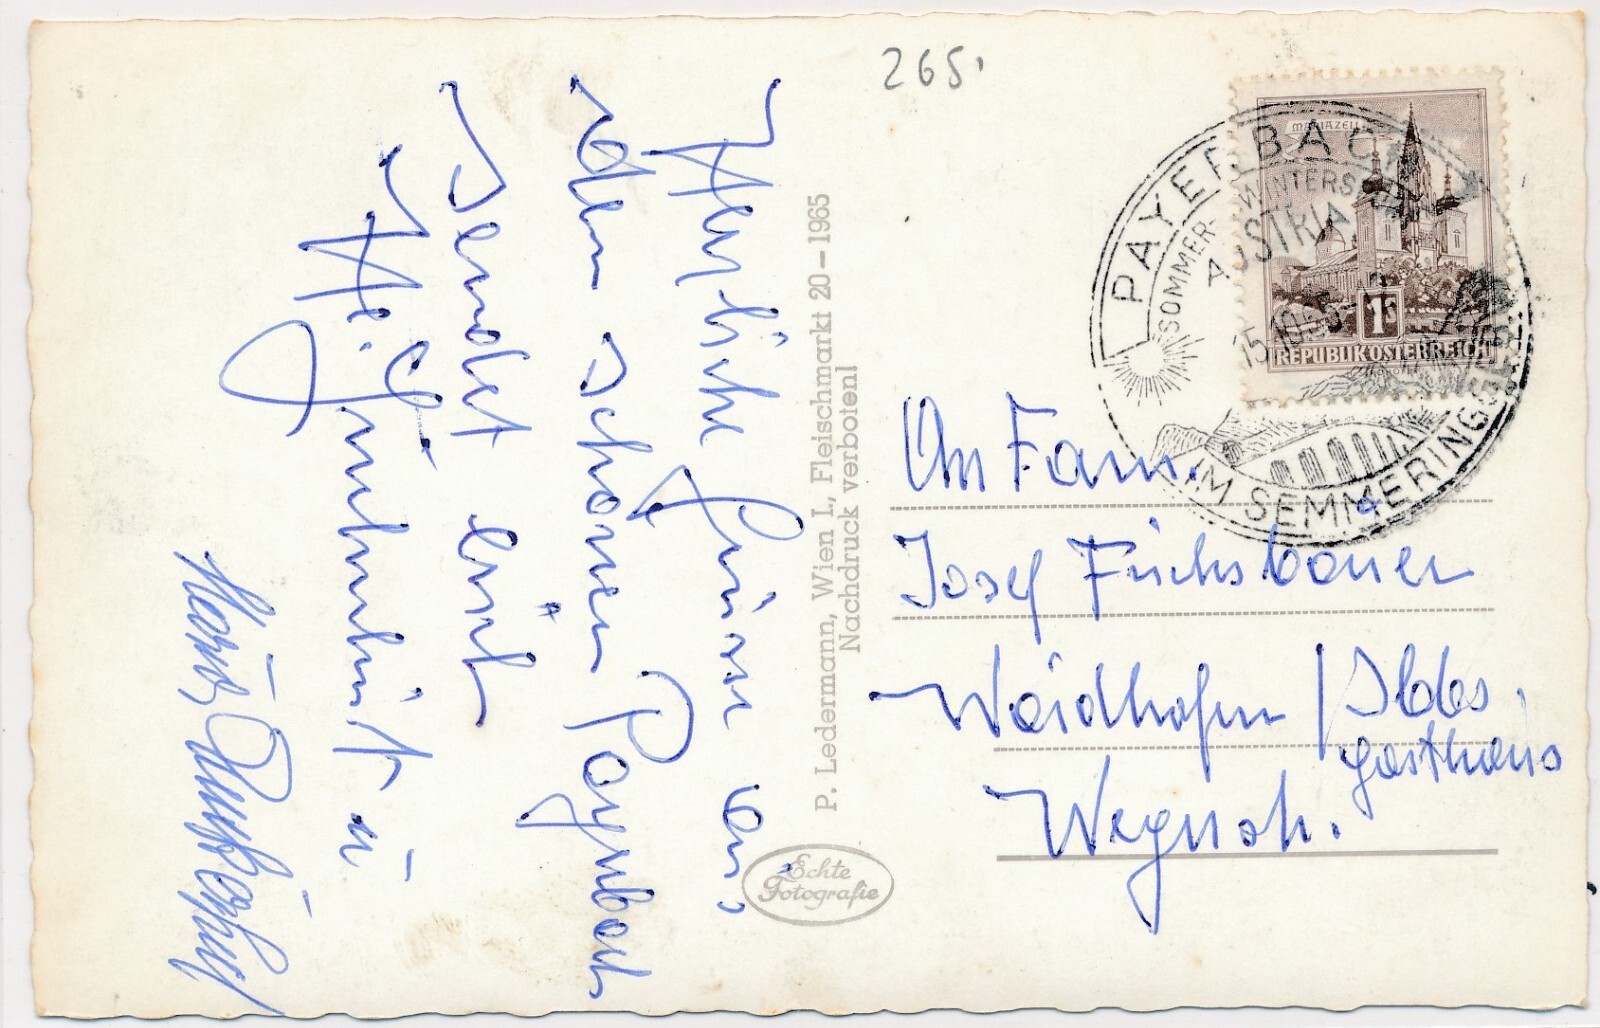 265.
Herzliche Grüsse aus
dem schönen Payerbach
sendet euch
u.
P. Ledermann, Wien I., Fleischmarkt 20 – 1965
Nachdruck verboten!
Echte
Fotografie
MARIAZELL
1 S
REPUBLIK ÖSTERREICH
PAYERBACH
SOMMER- WINTERS
AUSTRIA
15.10.65
IM SEMMERINGGEBIET
An Fam.
Josef Fuchsbauer
Waidhofen / Ybbs.
Gasthaus